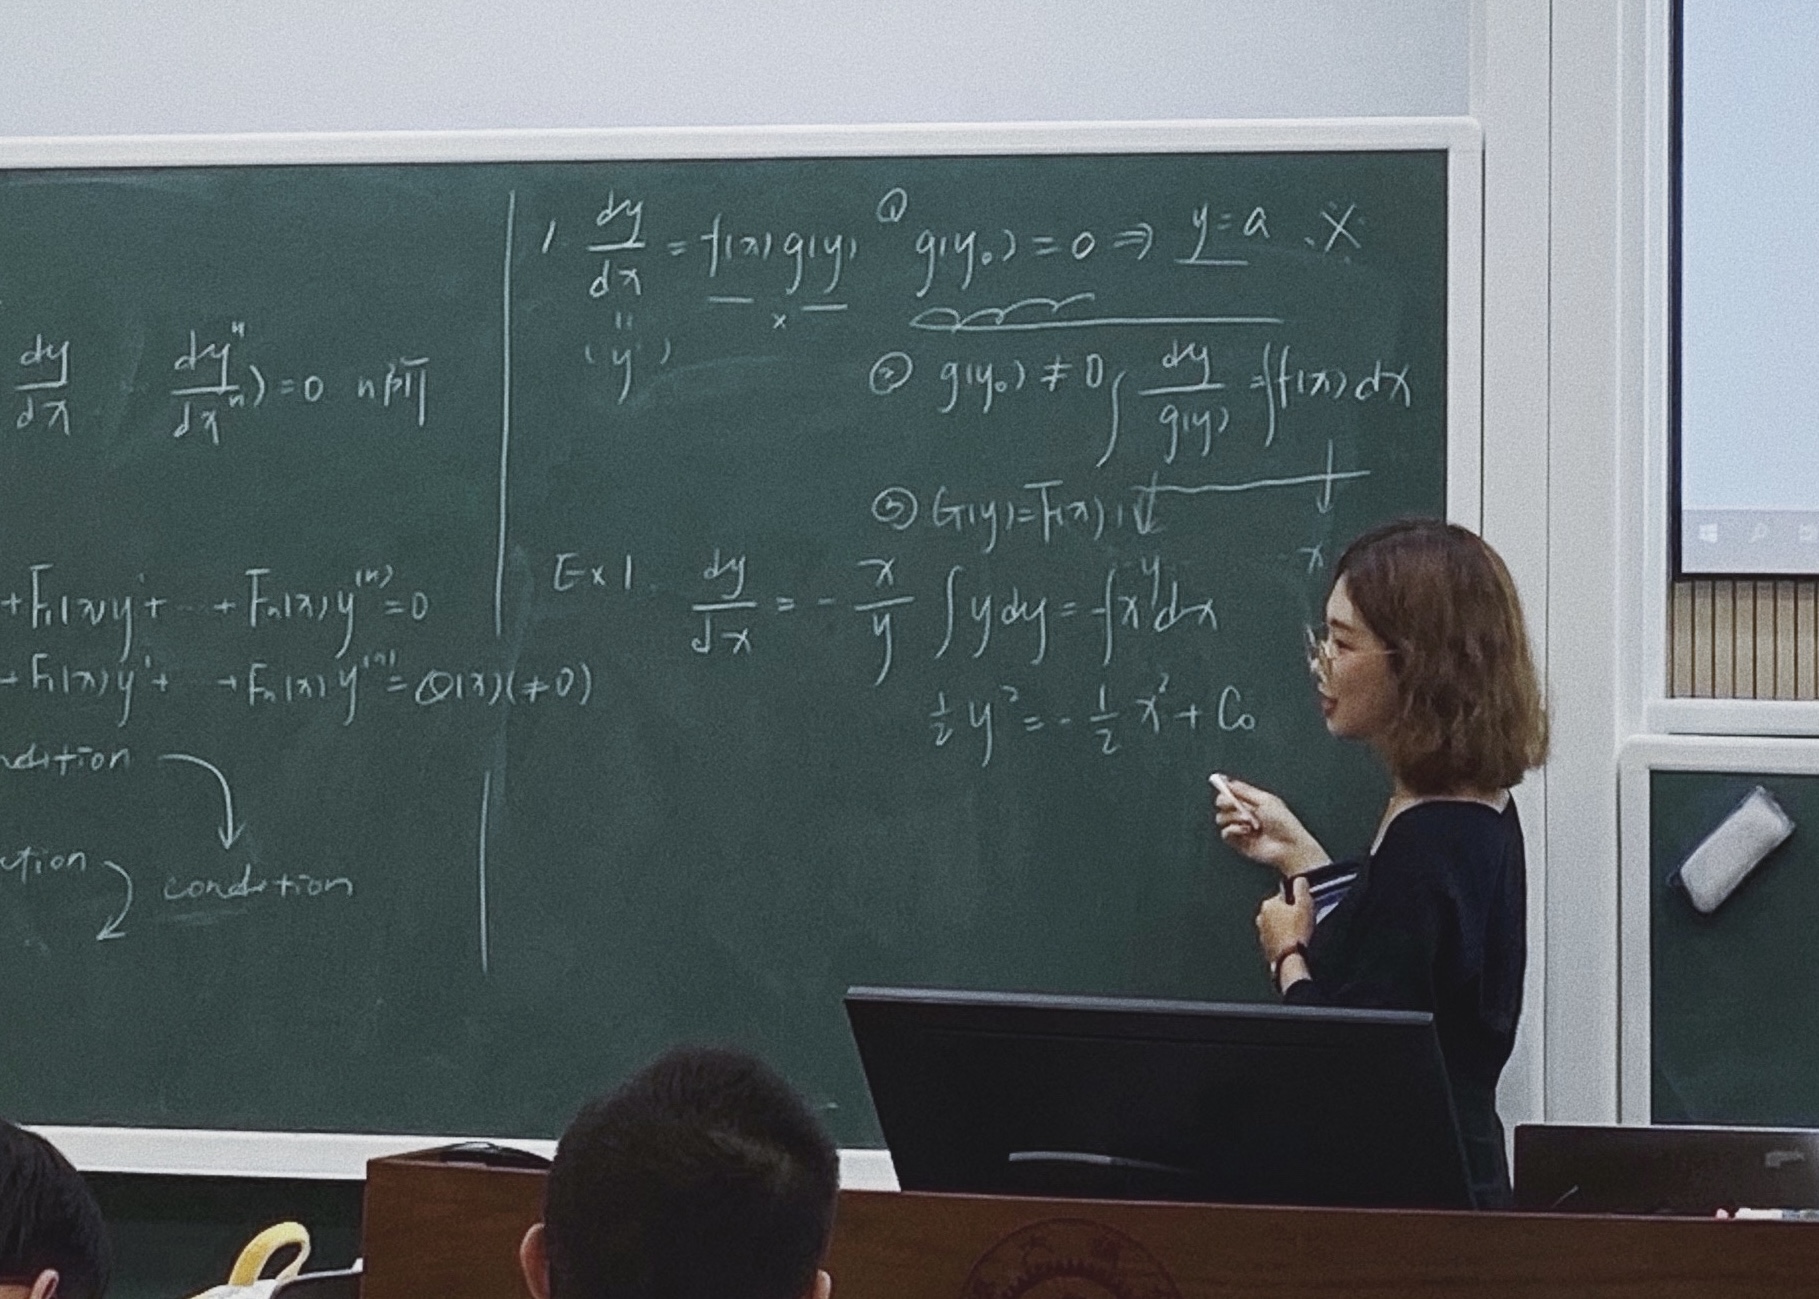 dy/dx dy^n/dx^n) = 0 n阶
+ F₁(x)y' + ... + Fₙ(x)y^(n) = 0
+ F₁(x)y' + ... + Fₙ(x)y^(n) = Q(x)(≠0)
ndition
ution
condition
1. dy/dx = f(x)g(y)
×
" (y')
① g(y₀) = 0 ⇒ y = a .X
② g(y₀) ≠ 0 ∫ dy/g(y) = ∫f(x)dx
③ G(y) = F(x) +
y x
Ex 1. dy/dx = - x/y ∫ydy = -∫x dx
½y² = -½x² + C₀